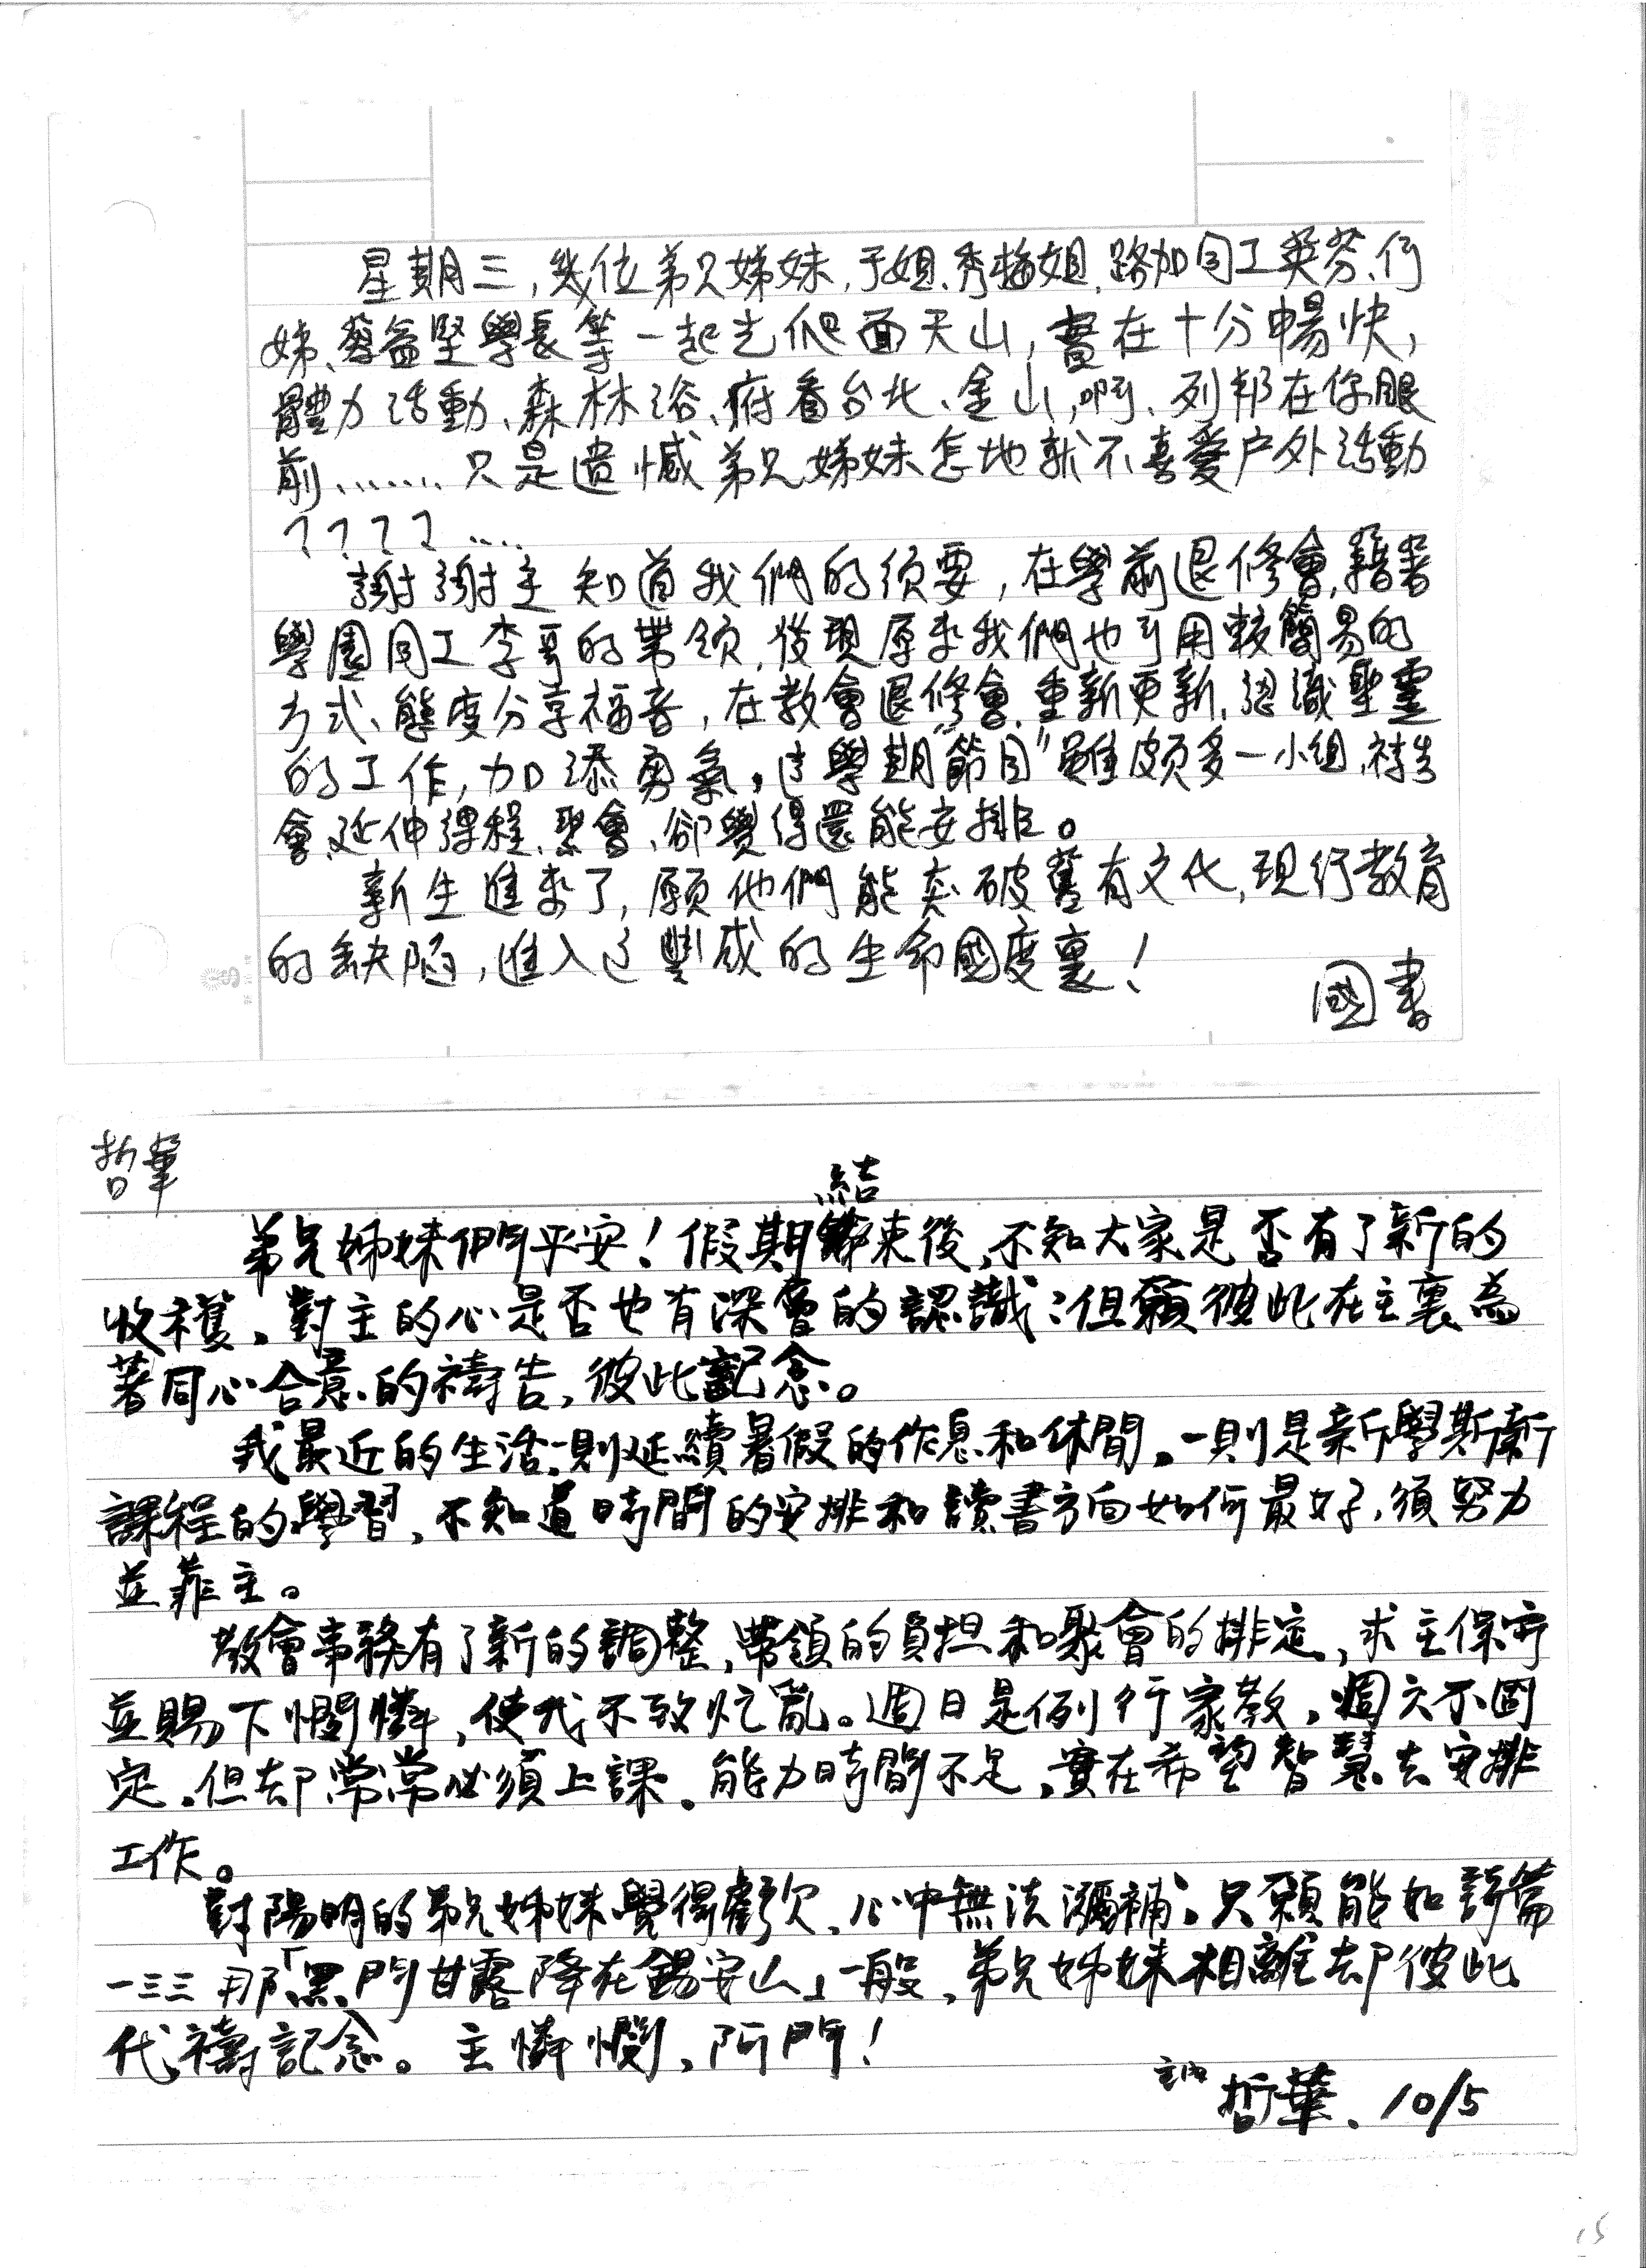 星期三,幾位弟兄姊妹,于姐、秀梅姐、路加同工英芬、何
姊、蔡益堅學長等一起去爬面天山,實在十分暢快,
體力活動、森林浴、俯看台北、金山,啊、列邦在你眼
前、……只是遺憾弟兄姊妹怎地就不喜愛户外活動
????……
謝謝主知道我們的須要,在學前退修會,藉著
學園同工李哥的帶領,發現原來我們也可用較簡易的
方式、態度分享福音,在教會退修會,重新更新,認識聖靈
的工作,加添勇氣。這學期"節目"雖頗多一小組、禱告
會、延伸課程、聚會、卻覺得還能安排。
新生進來了,願他們能突破舊有文化,現行教育
的缺陷,進入這豐盛的生命國度裏!
國書
哲華
結
弟兄姊妹們平安!假期束後,不知大家是否有了新的
收穫、對主的心是否也有深層的認識;但願彼此在主裏為
著同心合意的禱告,彼此記念。
我最近的生活,一則延續暑假的作息和休閒,一則是新學期新
課程的學習,不知道時間的安排和讀書方向如何最好,須努力
並靠主。
教會事務有了新的調整,帶領的負担和聚會的排定,求主保守
並賜下憫憐,使我不致忙亂。週日是例行家教,週六不固
定,但却常常必須上課。能力時間不足,實在希望智慧去安排
工作。
對陽明的弟兄姊妹覺得虧欠,心中無法彌補,只願能如詩篇
一三三那「黑門甘露降在錫安山」一般,弟兄姊妹相離却彼此
代禱記念。主憐憫,阿門!
主內 哲華、10/5
15